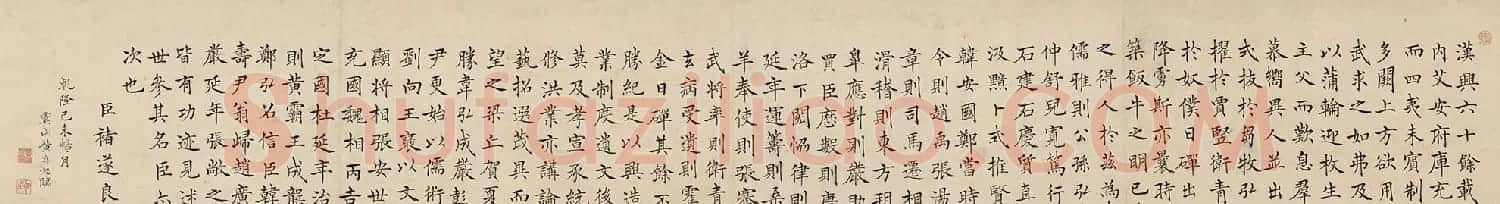 漢興六十餘載
内艾安府庫充
而四夷未賓制
多闕上方欲用
武求之如弗及
以蒲輪迎枚生
主父而歎息群
慕嚮異人並出
式拔於芻牧弘
擢於賈豎衛青
於奴僕日磾出
降虜斯亦曩時
築飯牛之明已
之得人於茲為
儒雅則公孫弘
仲舒兒寬篤行
石建石慶質直
汲黯卜式推賢
韓安國鄭當時
令則趙禹張湯
章則司馬遷相
滑稽則東方
皋應對則嚴助
買臣歷數則唐
洛下閎恊律則
延年運籌則桑
羊奉使則張騫
武將率則衛青
去病受遺則霍
金日磾其餘不
勝紀是以興造
業制度遺文後
莫及孝宣承統
修洪業亦講論
藝招選茂異而
望之梁丘賀夏
勝韋弘成嚴彭
尹更始以儒術
劉向王襃以文
顯將相張安世
充國魏相丙吉
定國杜延年治
則黃霸王成龔
鄭弘召信臣韓
壽尹翁歸趙廣
嚴延年張敞之
皆有功迹見述
世參其名臣亦
次也
臣褚遂良
乾隆己未 月
Shufaziliao.com